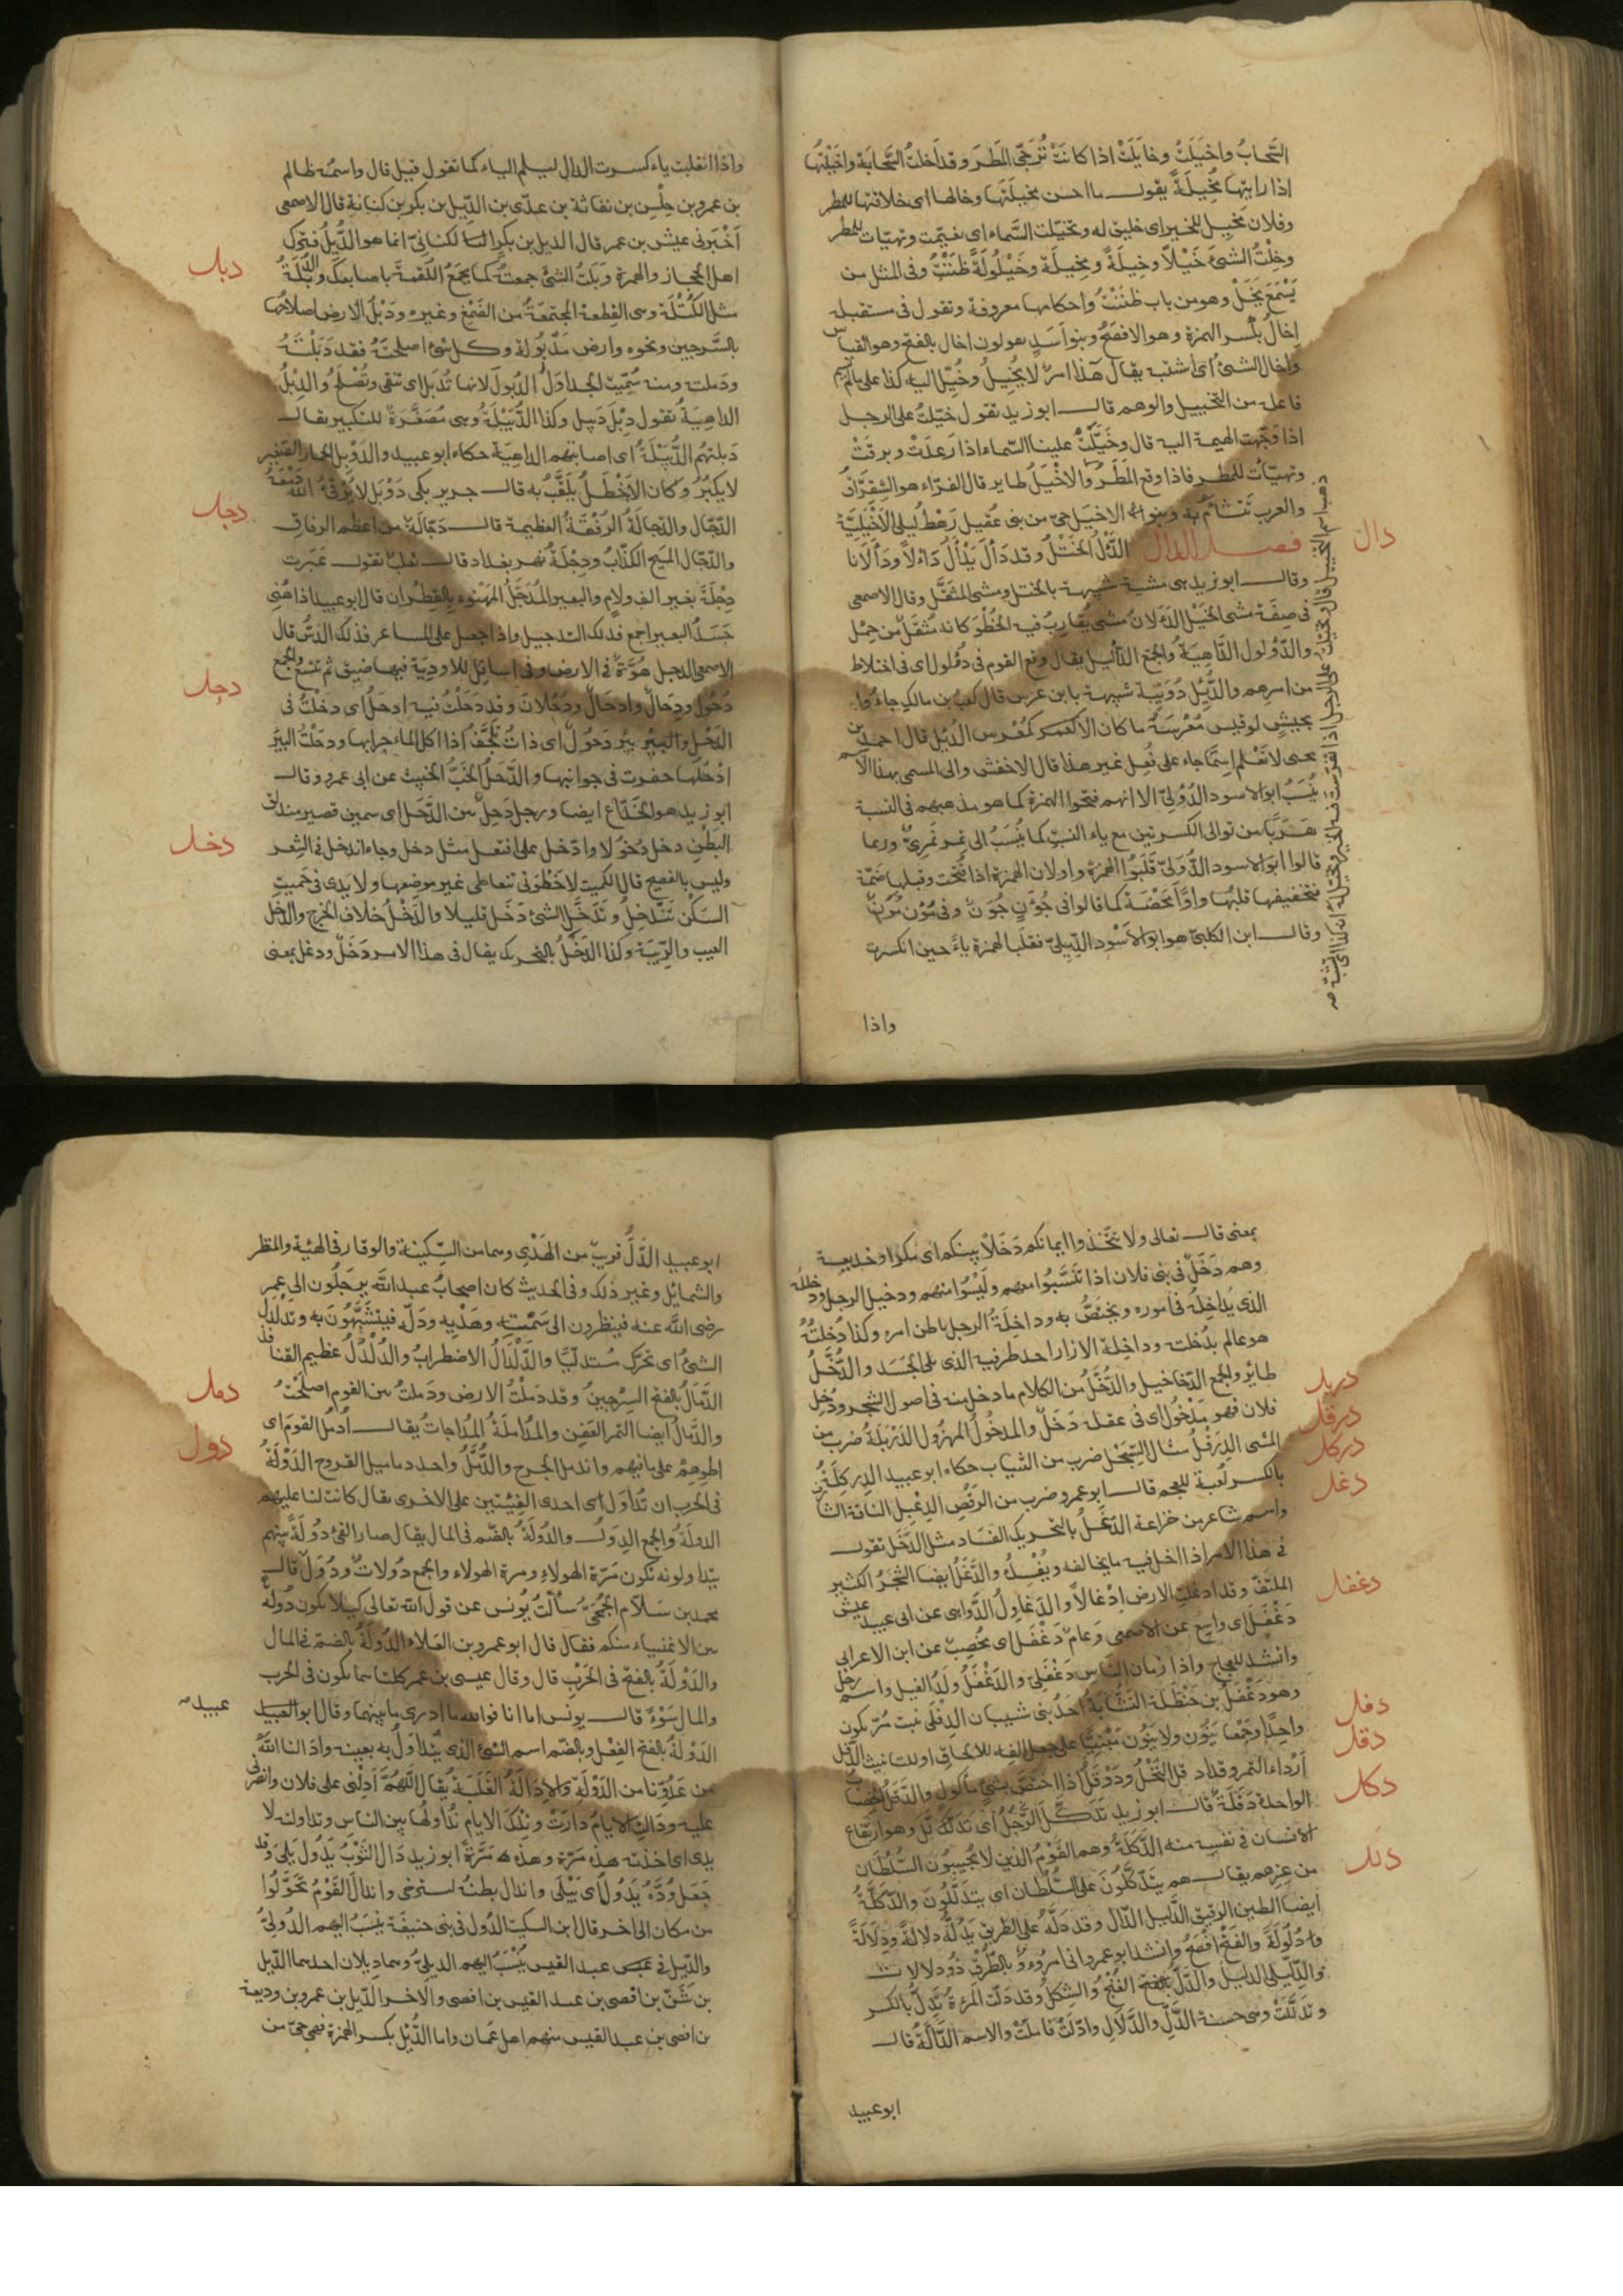 السَّحابُ واخيَلَتْ وخايَلَتْ اذا كانَتْ تُرَجّى المَطَر وقد اَخلتُ السَّحابَة واخيَلْتُها
اذا رايتها مُخِيلَةً يقول ما احسن مخيلَتَها وخالها اى خلاقتها للمطر
وفلان مخيل للخير اى خليق له وتخيّلت السَّماء اى تغيّمت وتهيّات للمطر
وخِلْتُ الشئ خَيْلاً وخِيلَةً ومخِيلَة وخَيْلُولَةً ظنَنْتُ وفى المثل من
يَسْمَعْ يَخَلْ وهو من باب ظنَنْتُ واحكامها معروفة وتقول فى مستقبله
إخالُ بكسر الهمزة وهو الافصَحُ وبنو اَسَدٍ يقولون اخال بالفتح وهو القياس
واخال الشئ اى اشتبه يقال هذا امر لا يُخِيلُ وخُيّل اليه كذا على ما لم يسم
فاعله من التخييل والوهم قال ابو زيد تقول خيّلتُ على الرجل
اذا وَجَّهت الهمة اليه قال وخَيَّلَتْ علينا السّماء اذا رعَدَتْ وبرقَتْ
وتهيّأَت للمطر فاذا وقع المَطَر والاخْيَلُ طاير قال الفرّاء هو الشِقِرّاقُ
والعرب تَتَشاءَم به وبنو الاخيَل حىّ من بنى عُقيل رَهْطُ ليلى الاَخْيَلِيَّة
فصل الدال الدَّأْلُ الخَتْلُ وقد دَأَلَ يَدْأَلُ دَاْلاً ودَأَلَانا
وقال ابو زيد هى مشية شبيهة بالختل ومشى المثقَّل وقال الاصمعى
فى صفَة مشى الخَيْل الدَأَلانُ مشىٌ يُقارِبُ فيه الخطْوَ كانه مُثقَلٌ من حِمْل
والدُّؤْلول الدَّاهِيَة والجمع الدَّآليل يقال وقع القوم فى دُؤْلول اى فى اختلاط
من امرهم والدُّئِل دُوَيِبّة شبيهة بابن عرس قال كعب بن مالك جاءُوا
بجيشٍ لو قيس مُعْرَسُهُ ما كان الا كمُعْرَس الدُئِل قال احمد بن
يحيى لا نَعْلم اسمًا جاء على فُعِل غير هذا قال الاخفش والى المسمى بهذا الاسم
نُسِبَ ابو الاسود الدُؤَلىّ الا انهم فتحوا الهمزة كما هو مذهبهم فى النسبة
هَرَبًا من توالى الكسرتين مع ياء النسب كما يُنسَبُ الى نَمِر نَمَرِىّ وربما
قالوا ابو الاسود الدُّوَلِىّ قَلَبُوا الهَمزة واوا لان الهمزة اذا فُتحت وقبلها ضمّة
فتخفيفها قلبُها واوًا مَحْضَة كما قالوا فى جُؤَنٍ جُوَن وفى مُؤَن مُوَن
وقال ابن الكلبىّ هو ابو الاَسْود الدِّيلِىّ فقلب الهمزة ياءً حين انكسرت
واذا
دال
واذا انقلبت ياء كسرت الدال ليسلم الياء كما تقول فيل قال واسمُه ظالم
بن عمرو بن حِلْس بن نفاثة بن عدىّ بن الدّيل بن بكر بن كنانة قال الاصمعى
اَخْبَرنى عيسى بن عمر قال الديل بن بكر الكنانىّ انما هو الدُّئِل فترك
اهل الحجاز والهمزة ودَبَلتُ الشئ جمعتُهُ كما يجمَعُ اللُقمةَ باصابعك والدُبْلَةُ
مثل الكُتْلَة وهى القِطعة المجتمعَةُ من الصَمْغ وغيره ودَبْلُ الارض اصلاحُها
بالسَّرجين ونحوه وارض مَدْبُولة وكل شئ اصلحتَهُ فقد دَبَلْتَهُ
ودملته ومنه سُمِّيَت الجداوَلُ الدُبُولَ لانها تُدْبَل اى تنقى وتُصْلَح والدِبْلُ
الداهيَةُ تقول دِبْل دَبيل وكذا الدُّبَيْلَةُ وهى مُصَغَّرَةٌ للتكبير يقال
دَبلتهُم الدُّبَيْلَةُ اى اصابتهم الداهيَة حكاه ابو عبيد والدَّوْبل الحمار الصغير
لا يكبُرُ وكان الاَخْطلُ يُلَقَّبُ به قال جرير بكى دَوْبَل لا يُرْقِئ الله دَمْعَهُ
الدَجّال والدَجّالَةُ الرُفْقَةُ العظيمة قال دَجّالَةً من اعظم الرفاق
والدَجّال المَسيح الكذّابُ ودِجْلَةُ نهر بغداد قال ثعلب تقول عَبَرت
دِجْلَةَ بغير الف ولام والبعير المُدَجَّلُ المَهْنوء بالقطران قال ابو عبيد اذا هُنِئ
جَسَدُ البعير اجمع فذلك التدجيل واذا جعل على المساعر فذلك الدَسُّ قال
الاصمعى الدحل هُوَّةٌ فى الارض وفى اسافل الاودية فيها ضيق ثم تتسع والجمع
دُحُول ودِحَال وادحَال ودُحْلان وقد دَحَلْتُ فيه ادحَلُ اى دخَلْتُ فى
الدَحْل والبئر بئر دَحُول اى ذات تَلَجُّف اذا اكل الماء جرابها ودحَلْتُ البئر
ادْحَلُها حفرت فى جوانبها والدَّحِلُ الخَبُّ الخَبيث عن ابى عمرو وقال
ابو زيد هو الخدّاع ايضا ورجل دَحِل بين الدَحَل اى سمين قصير مندلق
البَطْن دخل دُخولا وادّخل على افتعل مثل دخل وجاء اندخل فى الشِعر
وليس بالفصيح قال الكميت لا خَطْوَتى تتعاطى غير موضعها ولا يدى فى حَميت
السَكْن تَنْدَخِلُ وتَدَخَّل الشئ دَخَل قليلا والدَخْلُ خلاف الخرج والدخل
العيب والرِّيبَة وكذا الدَخَلُ بالتحريك يقال فى هذا الامر دَخَلٌ ودغل بمعنى
دبل
دجل
دحل
دخل
بمعنى قال تعالى ولا تتَّخذوا ايمانكم دَخَلاً بينكم اى مكرا وخديعة
وهم دَخَلٌ فى بنى فلان اذا تَنَسَّبُوا معهم ولَيْسُوا منهم ودخيل الرجل ودخلله
الذى يُدَاخِلُه فى اموره ويختصُّ به وداخِلَةُ الرجل باطن امره وكذا دُخلتُهُ
هو عالم بدُخلته وداخِلة الازار احد طرفيه الذى يلى الجَسَد والدُّخَّلُ
طائر والجمع الدّخاخيل والدُّخَّلُ من الكلام ما دخل منه فى اصول الشجر ودُخِل
فلان فهو مَدْخُول اى فى عقله دَخَلٌ والمدخُولُ المهزُول الدَّرْبَلَةُ ضرب من
المشى الدِرَفْلُ مثال السِّبَحْل ضرب من الثياب حكاه ابو عبيد الدِركِلَةُ
بالكسر لعبة للعجم قال ابو عمرو ضرب من الرَقْص الدِعْبِل الناقة الشارف
واسم شاعر من خزاعة الدَغَلُ بالتحريك الفَسَاد مثل الدَّخَل تقول
فى هذا الامر اذا ادخل فيه ما يخالفه ويُفْسِدُه والدَّغَلُ ايضا الشَجَرُ الكثير
الملتفّ وقد ادغلت الارض اِدْغالاً والدَغاوِلُ الدَّوَاهى عن ابى عبيد عيش
دَغْفَل اى واسِع عن الاصمعى وعام دَغْفَل اى مُخْصِب عن ابن الاعرابى
وانشد للعجاج واذا زمان الناس دَغْفَلِىّ والدَغْفَلُ ولَدُ الفيل واسم رجل
وهو دَغْفَلُ بن حَنْظَلَة النَسَّابَة احَدُ بنى شيبان الدِفْلَى نبت مُرّ يكون
واحِدًا وجَمْعًا يُنَوّن ولا يُنَوَّن فمن جعل الفه للالحاق او للتانيث الدَّقَل
اَرْدَاء التمر وقد ادقل النَّخْلُ ودَوْقَلَ اذا اختَصّ بشئ مأكول والدَّقَلُ الخَصَاب
الواحدة دَقَلَةٌ قال ابو زيد تَدَكَّلَ الرَّجُلُ اى تَدَلَّلَ وهو ارتفاع
الانسان فى نفسِه منه الدَّكَلَةُ وهم القَوْمُ الذين لا يُجيبونَ السُّلْطان
من عِزِهم يقال هم يَتَدَكَّلُونَ على السُّلْطان اى يتدَلَّلُونَ والدَّكَلَةُ
ايضا الطين الرقيق الدَّليل الدّال وقد دَلَّهُ على الطريق يَدُلُّهُ دلالةً ودِلَالةً
ودُلُولَةً والفَتْحُ افْصَحُ وانشد ابو عمرو انى امرُؤٌ بالطُّرْقِ ذُو دلالات
والدِّلّيلى الدليل والدَّلُّ بالفتح الغُنْجُ والشِكلُ وقد دَلّت المَرْءَةُ تَدِلّ بالكسر
وتَدَلَّلَتْ وهى حسنة الدَّلِّ والدَّلَال وادّلَتْ فاملَتْ والاسم الدَّالَّةُ قال
ابو عبيد
دربل
درقل
دركل
دغل
دغفل
دفل
دقل
دكل
دلل
ابو عبيد الدَّلُّ قريبٌ من الهَدْىِ وهما من السِّكينة والوقار فى الهيْئة والمنظر
والشمائل وغير ذلك وفى الحديث كان اصحابُ عبد الله يرحَلُون الى عمر
رضى الله عنه فينظرون الى سَمْته وهَدْيِه ودَلّه فيتشَبَّهُونَ به وتدَلْدَلَ
الشئُ اى تحرّك متدلّيًا والدَّلْدَالُ الاضطرابُ والدُلْدُلُ عظيم القنافذ
الدَّمَالُ بالفتح السِّرجينُ وقد دَمَلْتُ الارض ودَملتُ بين القوم اصلَحْتُ
والدَّمَالُ ايضا التمر العَفِن والمُدَاملَةُ المُدَاجاتُ يقال اُدْمُل القومَ اى
اطْوِهِمْ على ما فيهم واندمل الجرح والدُّمَّلُ واحد دماميل القروح الدَوْلَةُ
فى الحرب ان تُدَاوَل اى احدى الفِئتين على الاخرى يقال كانت لنا عليهم
الدولَةُ والجمع الدِوَل والدُولَةُ بالضّم فى المال يقال صار الفَئُ دُولةً بينهم
يتداولونه تكون مَرّة لهؤلاء ومرة لهؤلاء والجمع دُولات ودُوَل قال
محمد بن سلّام الجُمَحِىُّ سُألتُ يُونس عن قول الله تعالى كيلا يكون دُولةً
بين الاغنياء منكم فقال قال ابو عمرو بن العلاء الدُّولَةُ بالضم فى المال
والدَوْلَةُ بالفتح فى الحَرْب قال وقال عيسى بن عمر كلتاهما يكون فى الحرب
والمال سَوْءٌ قال يونس اما انا فوالله ما ادرى ما بينهما وقال ابو العبيد
الدَوْلَةُ بالفتح الفِعْل وبالضّم اسم الشئ الذى يُتْدَاوَلُ به بعينه وادالنا الله
من عَدُوّنا من الدَوْلَة والاِدَالَةُ الغَلَبَة يُقال اللَّهُمَّ اَدِلْنى على فلان وانصُرنى
عليه ودَالت الايامُ دارَتْ وتِلْكَ الايام نُدَاوِلُها بين الناس وتداولته الا
يدى اى اخذَته هذه مرّة وهذه مَرَّةً ابو زيد دَالَ الثَوْبُ يَدُول بَلِىَ وقد
جَعَلَ وُدُّهُ يَدُول اى يَبْلَى واندال بطنُهُ استرخى واندالَ القَوْمُ تحَوَّلُوا
من مكان الى اخر قال ابن السكيت الدُول فى بنى حنيفَة يُنسَبُ اليهم الدُولِىُّ
والدّيل فى عبد القيس يُنْسَبُ اليهم الدِيلِىّ وهما ديلان احدهما الدّيل
بن شَنّ بن اَفصى بن عبد القيس بن افصى والاخر الدّيل بن عمرو بن وديعة
بن افصى بن عبد القيس منهم اهل عُمان واما الدُئِل بكسر الهمزة فهى حىّ من
دمل
دول
عبيده